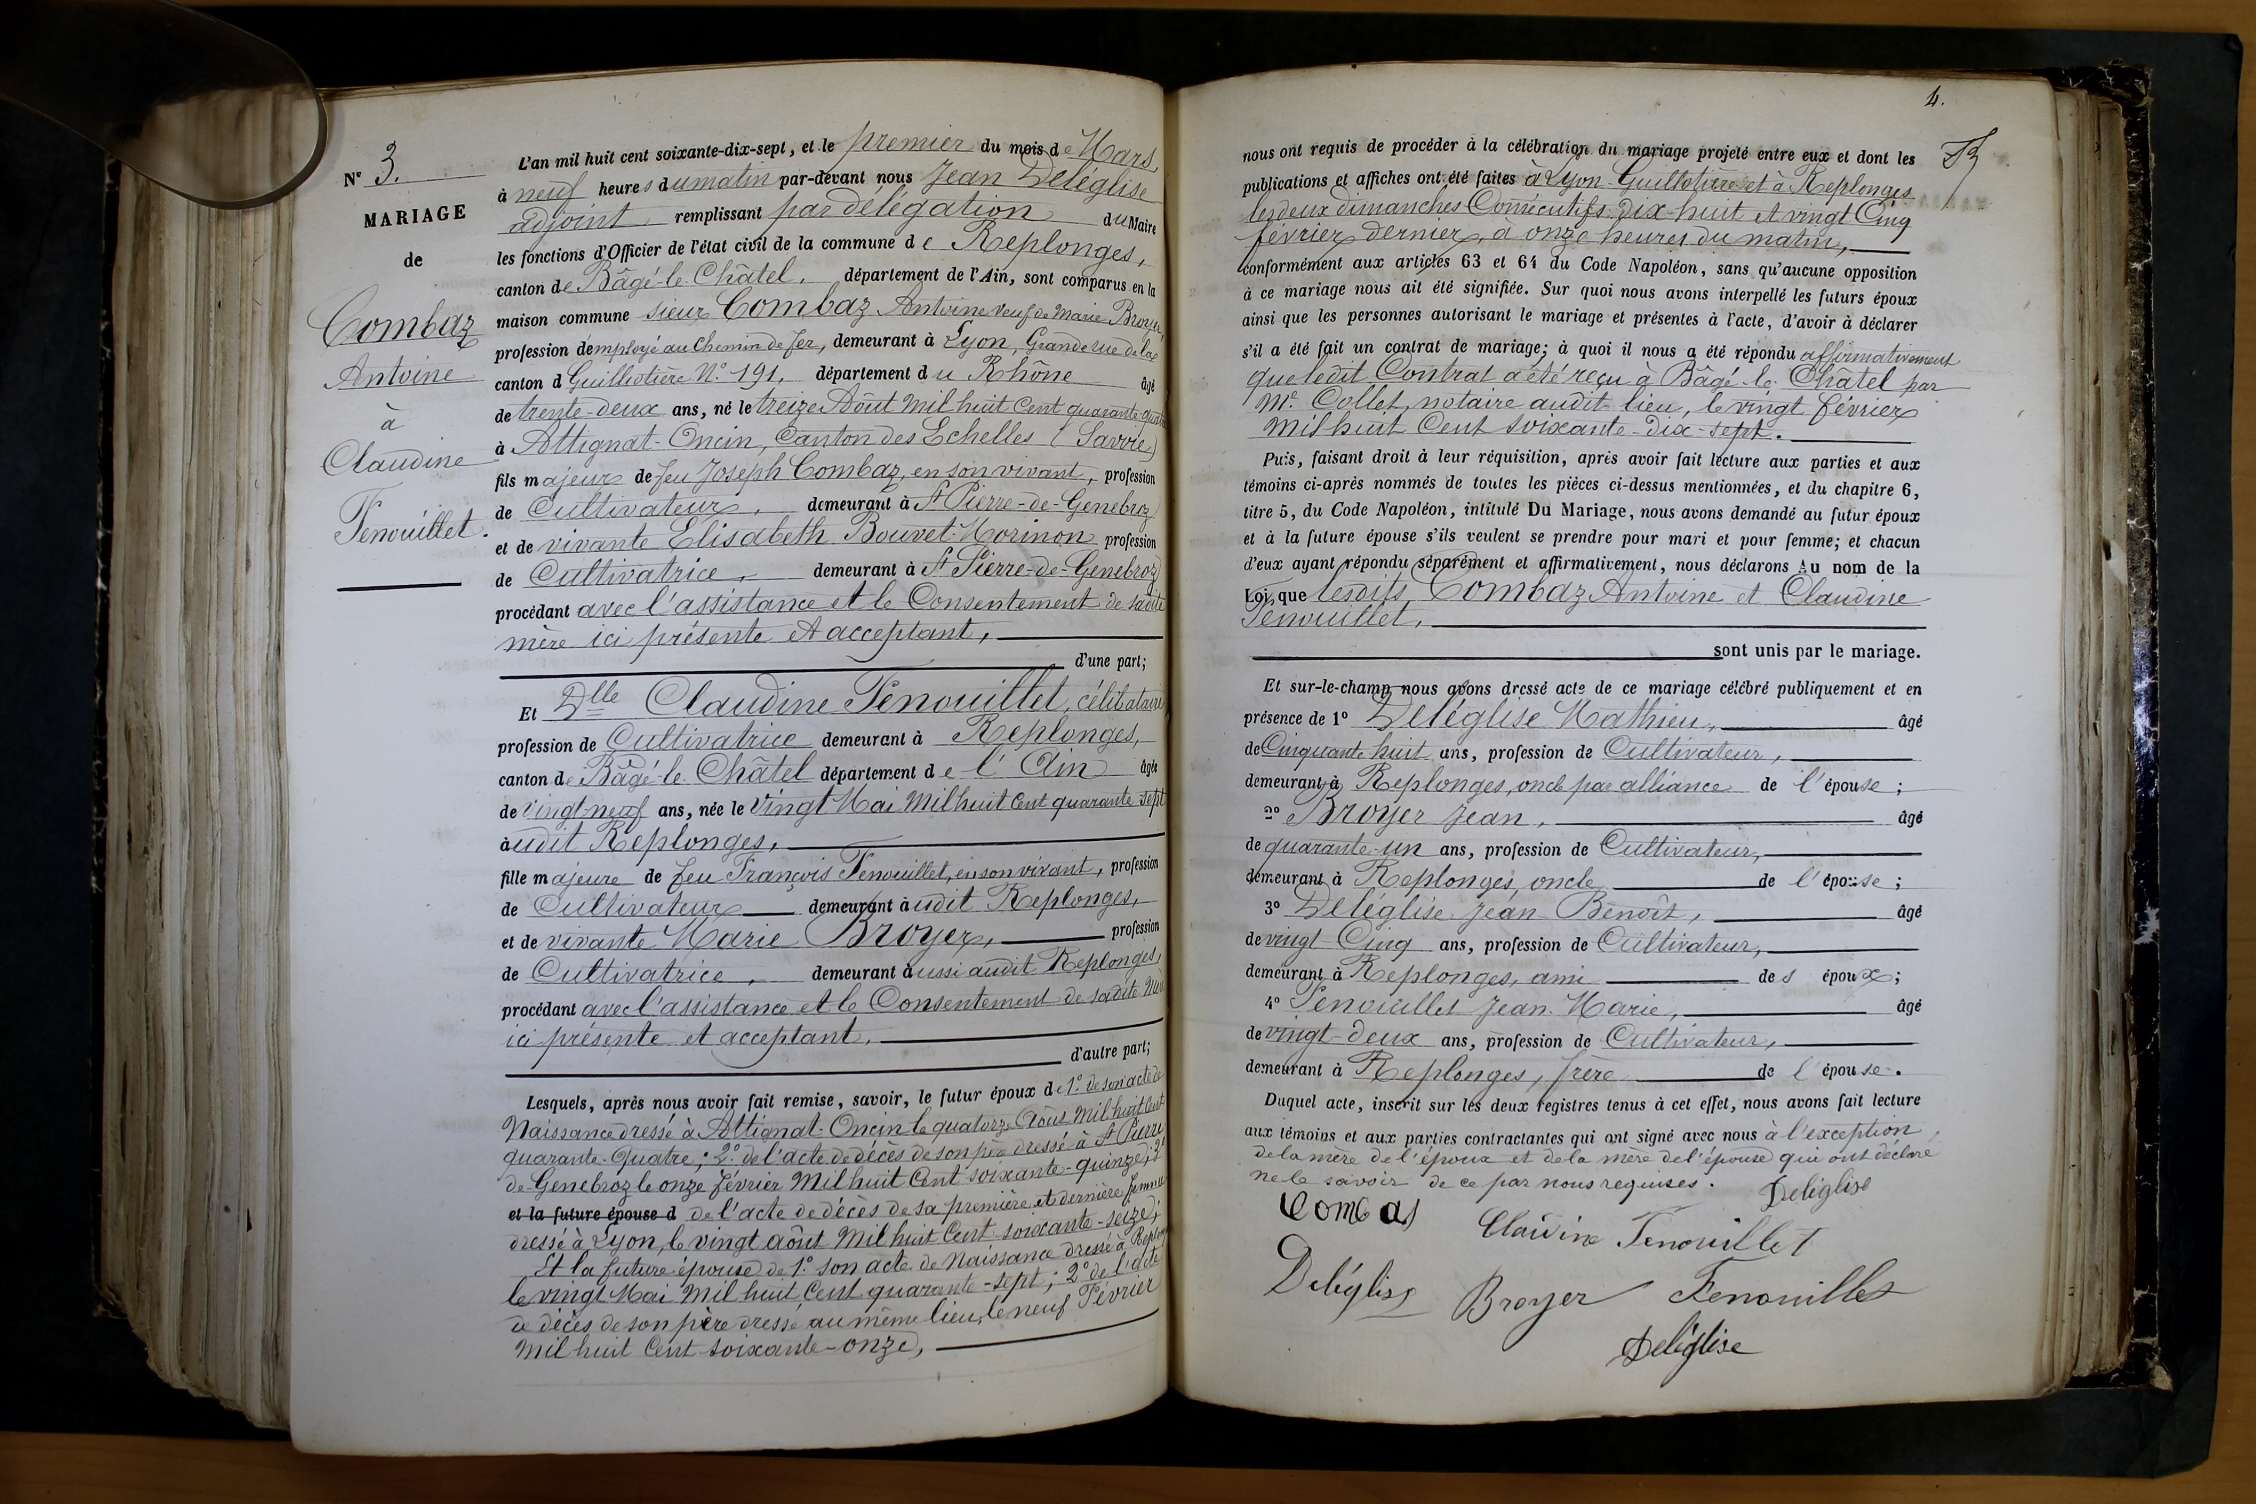 N° 3.
MARIAGE
de
Combaz
Antoine
à
Claudine
Fenouillet.
L'an mil huit cent soixante-dix-sept, et le premier du mois de Mars,
à neuf heures du matin par-devant nous Jean Deléglise
adjoint remplissant par délégation du Maire
les fonctions d'Officier de l'état civil de la commune de Replonges,
canton de Bâgé-le-Châtel, département de l'Ain, sont comparus en la
maison commune sieur Combaz Antoine veuf de Marie Broyer,
profession d'employé au Chemin de fer, demeurant à Lyon, Grande rue de la
canton d Guillotière N° 191, département du Rhône âgé
de trente-deux ans, né le treize Août Mil huit Cent quarante-quatre
à Attignat-Oncin, Canton des Echelles (Savoie)
fils majeur de feu Joseph Combaz, en son vivant, profession
de Cultivateur, demeurant à St Pierre-de-Genebroz
et de vivante Elisabeth Bouvet-Morinon profession
de Cultivatrice, demeurant à St Pierre-de-Genebroz
procédant avec l'assistance et le Consentement de sadite
mère ici présente et acceptant,
d'une part;
Et Dlle Claudine Fenouillet, célibataire
profession de Cultivatrice demeurant à Replonges,
canton de Bâgé-le-Châtel département de l'Ain âgée
de vingt neuf ans, née le Vingt Mai Mil huit Cent quarante sept
audit Replonges,
fille majeure de feu François Fenouillet, en son vivant, profession
de Cultivateur demeurant audit Replonges,
et de vivante Marie Broyer, profession
de Cultivatrice, demeurant aussi audit Replonges,
procédant avec l'assistance et le Consentement de sadite Mère
ici présente et acceptant,
d'autre part;
Lesquels, après nous avoir fait remise, savoir, le futur époux de 1° de son acte de
Naissance dressé à Attignat-Oncin le quatorze Août Mil huit Cent
quarante-Quatre; 2° de l'acte de décès de son père dressé à St Pierre
de-Genebroz le onze février Mil huit Cent soixante-quinze; 3°
et la future épouse d de l'acte de décès de sa première et dernière femme
dressé à Lyon, le vingt août Mil huit Cent soixante-seize;
Et la future épouse de 1° son acte de Naissance dressé à Replonges
le vingt Mai Mil huit Cent quarante-sept; 2° de l'acte
de décès de son père dressé au même lieu, le neuf Février
Mil huit Cent soixante-onze,
4.
nous ont requis de procéder à la célébration du mariage projeté entre eux et dont les
publications et affiches ont été faites à Lyon-Guillotière et à Replonges
les deux dimanches Consécutifs dix-huit et vingt Cinq
février dernier, à onze heures du matin,
conformément aux articles 63 et 64 du Code Napoléon, sans qu'aucune opposition
à ce mariage nous ait été signifiée. Sur quoi nous avons interpellé les futurs époux
ainsi que les personnes autorisant le mariage et présentes à l'acte, d'avoir à déclarer
s'il a été fait un contrat de mariage; à quoi il nous a été répondu affirmativement
que ledit Contrat a été reçu à Bâgé-le-Châtel par
Me Collet, notaire audit lieu, le vingt février
Mil huit Cent soixante-dix-sept.
Puis, faisant droit à leur réquisition, après avoir fait lecture aux parties et aux
témoins ci-après nommés de toutes les pièces ci-dessus mentionnées, et du chapitre 6,
titre 5, du Code Napoléon, intitulé Du Mariage, nous avons demandé au futur époux
et à la future épouse s'ils veulent se prendre pour mari et pour femme; et chacun
d'eux ayant répondu séparément et affirmativement, nous déclarons Au nom de la
Loi que lesdits Combaz Antoine et Claudine
Fenouillet,
sont unis par le mariage.
Et sur-le-champ nous avons dressé acte de ce mariage célébré publiquement et en
présence de 1° Deléglise Mathieu, âgé
de Cinquante huit ans, profession de Cultivateur,
demeurant à Replonges, oncle par alliance de l'épouse;
2° Broyer Jean, âgé
de quarante-un ans, profession de Cultivateur,
demeurant à Replonges, oncle de l'épouse;
3° Deléglise Jean Benoît, âgé
de vingt-Cinq ans, profession de Cultivateur,
demeurant à Replonges, ami des époux;
4° Fenouillet Jean-Marie, âgé
de vingt-deux ans, profession de Cultivateur,
demeurant à Replonges, frère de l'épouse.
Duquel acte, inscrit sur les deux registres tenus à cet effet, nous avons fait lecture
aux témoins et aux parties contractantes qui ont signé avec nous à l'exception
de la mère de l'époux et de la mère de l'épouse qui ont déclaré
ne le savoir de ce par nous requises. Deléglise
Combas Claudine Fenouillet
Deléglise Broyer Fenouillet
Deléglise